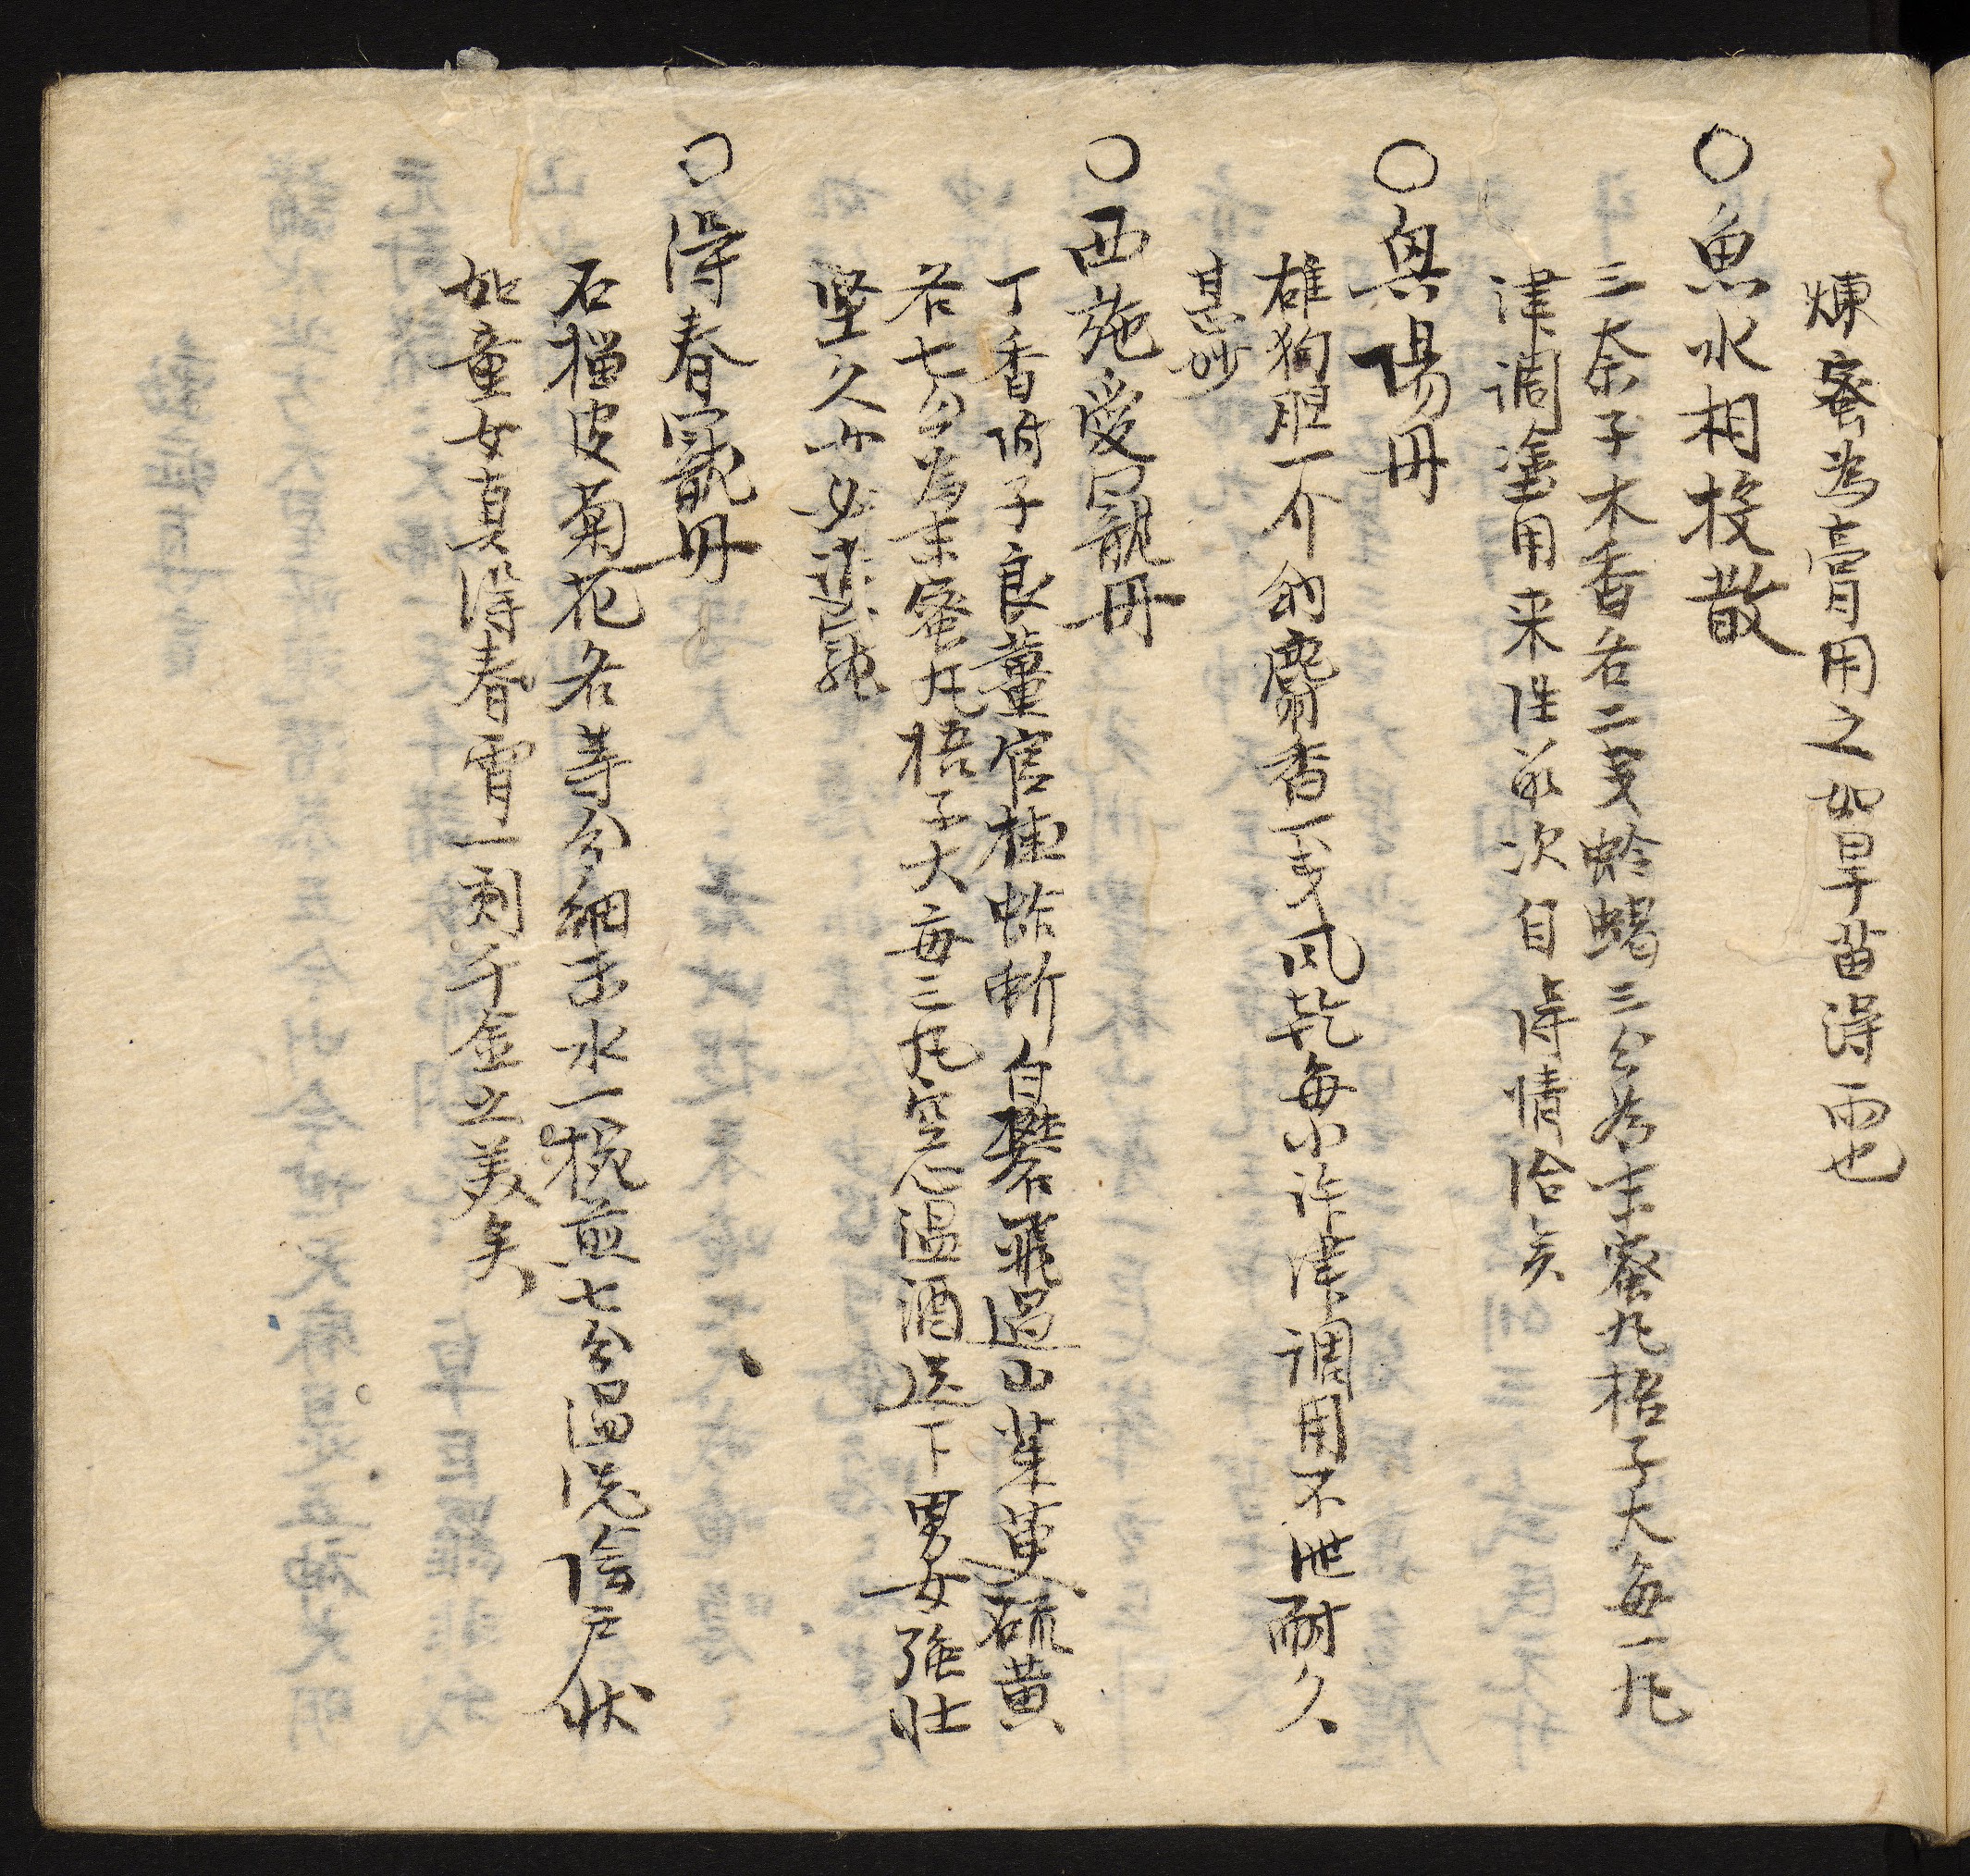 煉蜜为膏用之如旱苗得雨也
○魚水相投散
三柰子木香各二戔蛤蝎三分为末蜜丸梧子大每一丸
津调塗用来往数次自得情洽矣
○興阳丹
雄狗胆一介納麝香一戋风乾每小许津调用不泄耐久
甚妙
○西施受寵丹
丁香附子良薑官桂蛤蚧白礬飛過山茱萸硫黄
各七分为末蜜丸梧子大每三丸空心温酒送下男女強壮
坚久少女
○得春寵丹
石榴皮菊花各等分細末水一椀煎七分温洗陰戶状
如童女真得春宵一刻千金之美矣